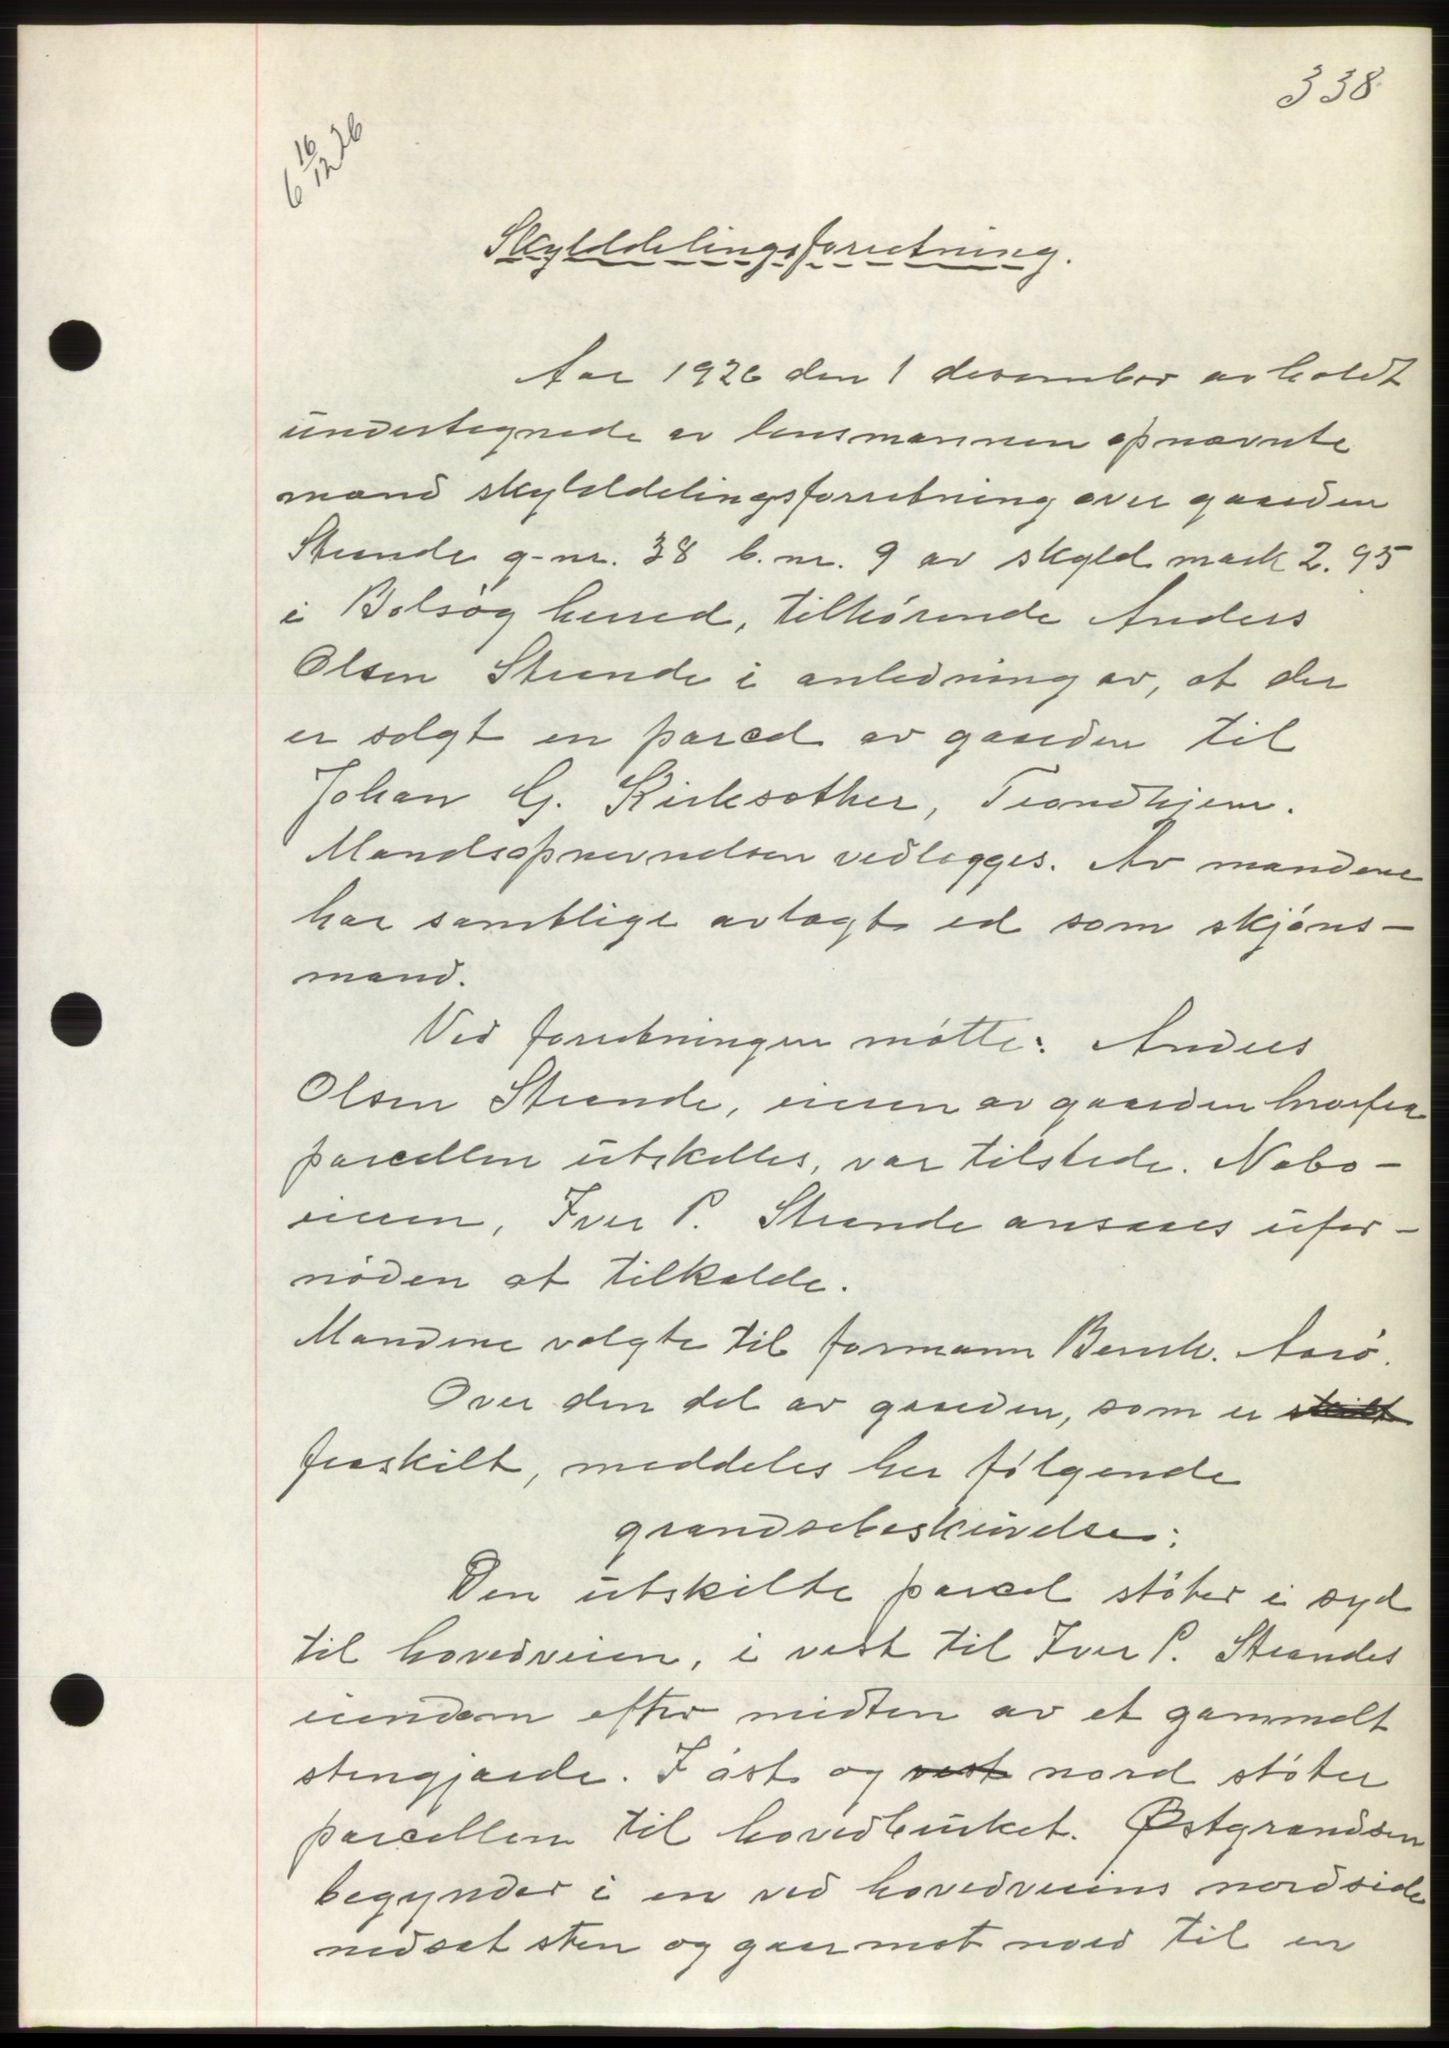 338
6 16/12 26
Skylddelingsforretning.
Aar 1926 den 1 desember avholdt
undertegnede av lensmannen opnævnte
mænd skylddelingsforretning over gaarden
Strande g-nr. 38 b. nr. 9 av skyld mark 2.95
i Bolsøy herred, tilhørende Anders
Olsen Strande i anledning av, at der
er solgt en parcel av gaarden til
Johan G. Kirksæther, Trondhjem.
Mandsopnevnelsen vedlegges. Av mændene
har samtlige avlagt ed som skjøns-
mænd.
Ved forretningen møtte: Anders
Olsen Strande, eieren av gaarden hvorfra
parcellen utskilles, var tilstede. Nabo-
eieren, Iver P. Strande ansaaes ufor-
nøden at tilkalde.
Mændene valgte til formann Bernh. Aarø.
Over den del av gaarden, som er skilt
fraskilt, meddeles her følgende
grændsebeskrivelse:
Den utskilte parcel støter i syd
til hovedveien, i vest til Iver P. Strandes
eiendom efter midten av et gammelt
stengjærde. I øst og vest nord støter
parcellen til hovedbruket. Østgrændsen
begynder i en ved hovedveiens nordside
nedsat sten og gaar mot nord til en